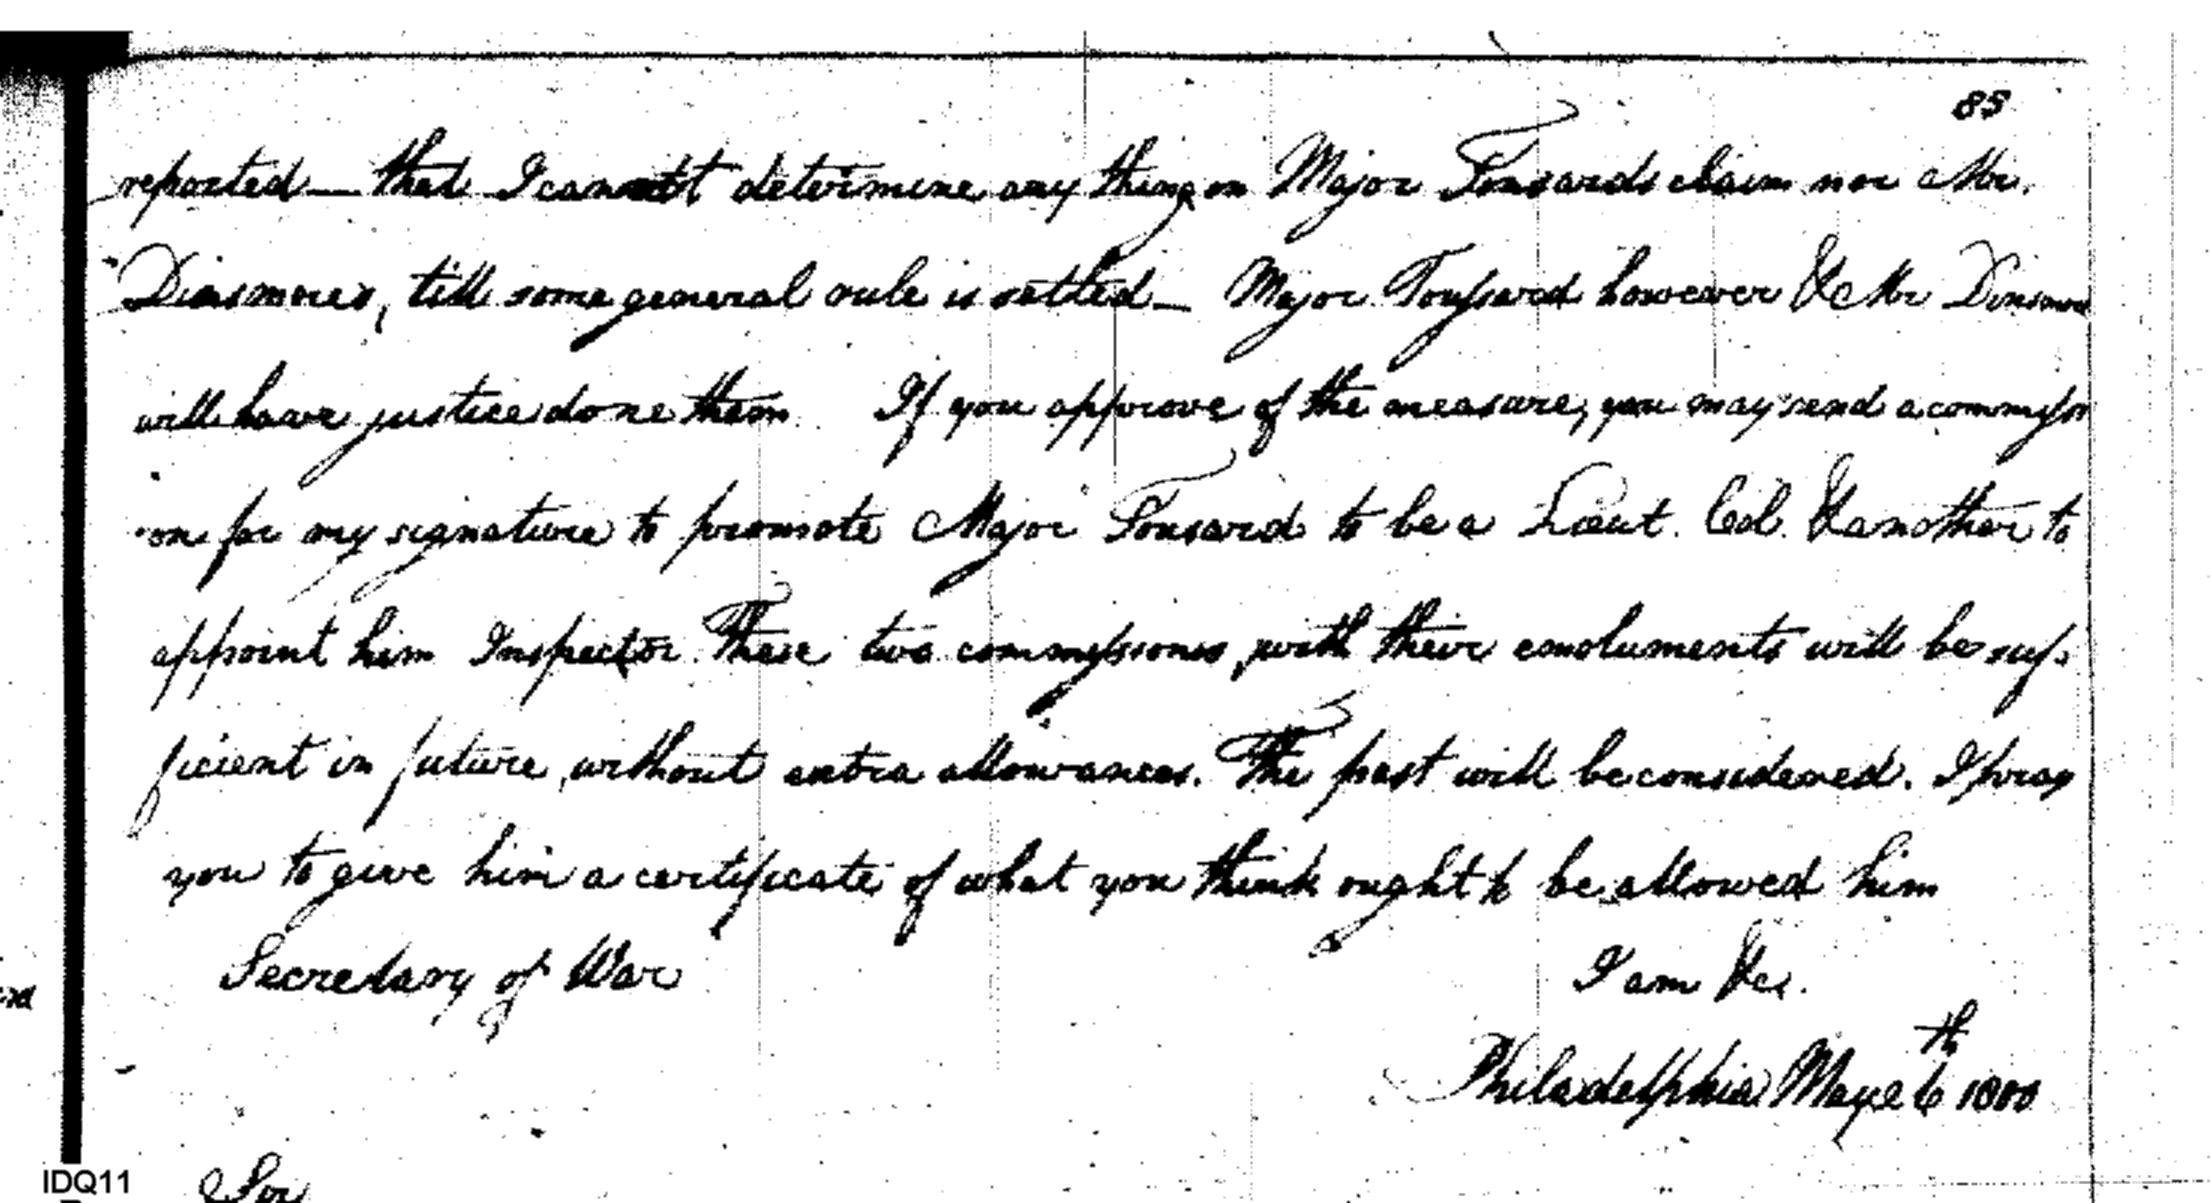 85
reported — that I cannot determine any thing on Major Tousards claim nor Mr.
Dinsmores, till some general rule is settled — Major Toussard however & Mr Dinsmore
will have justice done them If you approve of the measure, you may send a commissi
on for my signature to promote Major Tousard to be a Lieut. Col. & another to
appoint him Inspector. These two commissions, with their emoluments will be suf-
ficient in future, without extra allowances. The past will be considered. I pray
you to give him a certificate of what you think ought to be allowed him
Secretary of War I am &c.
Philadelphia May 26th 1800
Sir
IDQ11